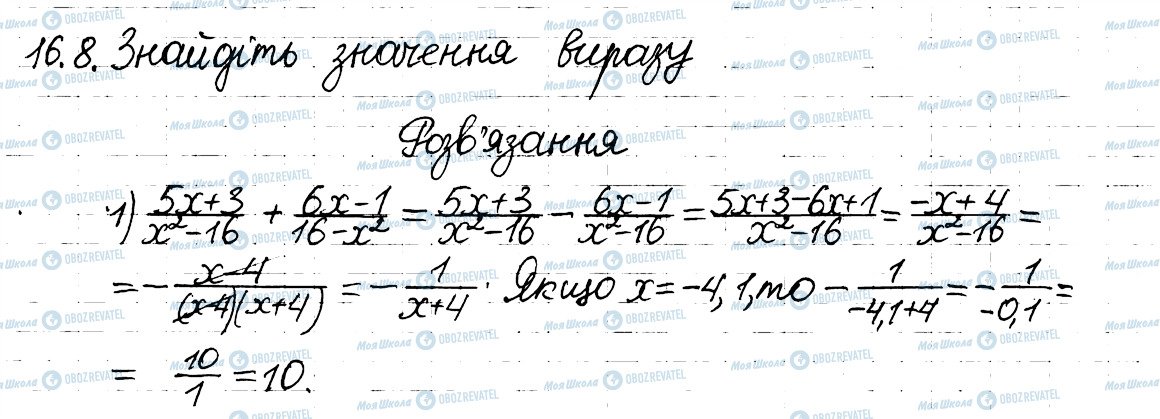 16.8. Знайдіть значення виразу
Розв'язання
1) (5x+3)/(x²-16) + (6x-1)/(16-x²) = (5x+3)/(x²-16) - (6x-1)/(x²-16) = (5x+3-6x+1)/(x²-16) = (-x+4)/(x²-16) =
= -(x-4)/((x-4)(x+4)) = -1/(x+4). Якщо x=-4,1, то -1/(-4,1+4) = -1/(-0,1) =
= 10/1 = 10.